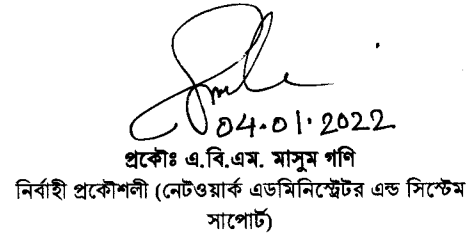 04.01.2022
প্রকৌঃ এ.বি.এম. মাসুম গণি
নির্বাহী প্রকৌশলী (নেটওয়ার্ক এডমিনিস্ট্রেটর এন্ড সিস্টেম
সাপোর্ট)